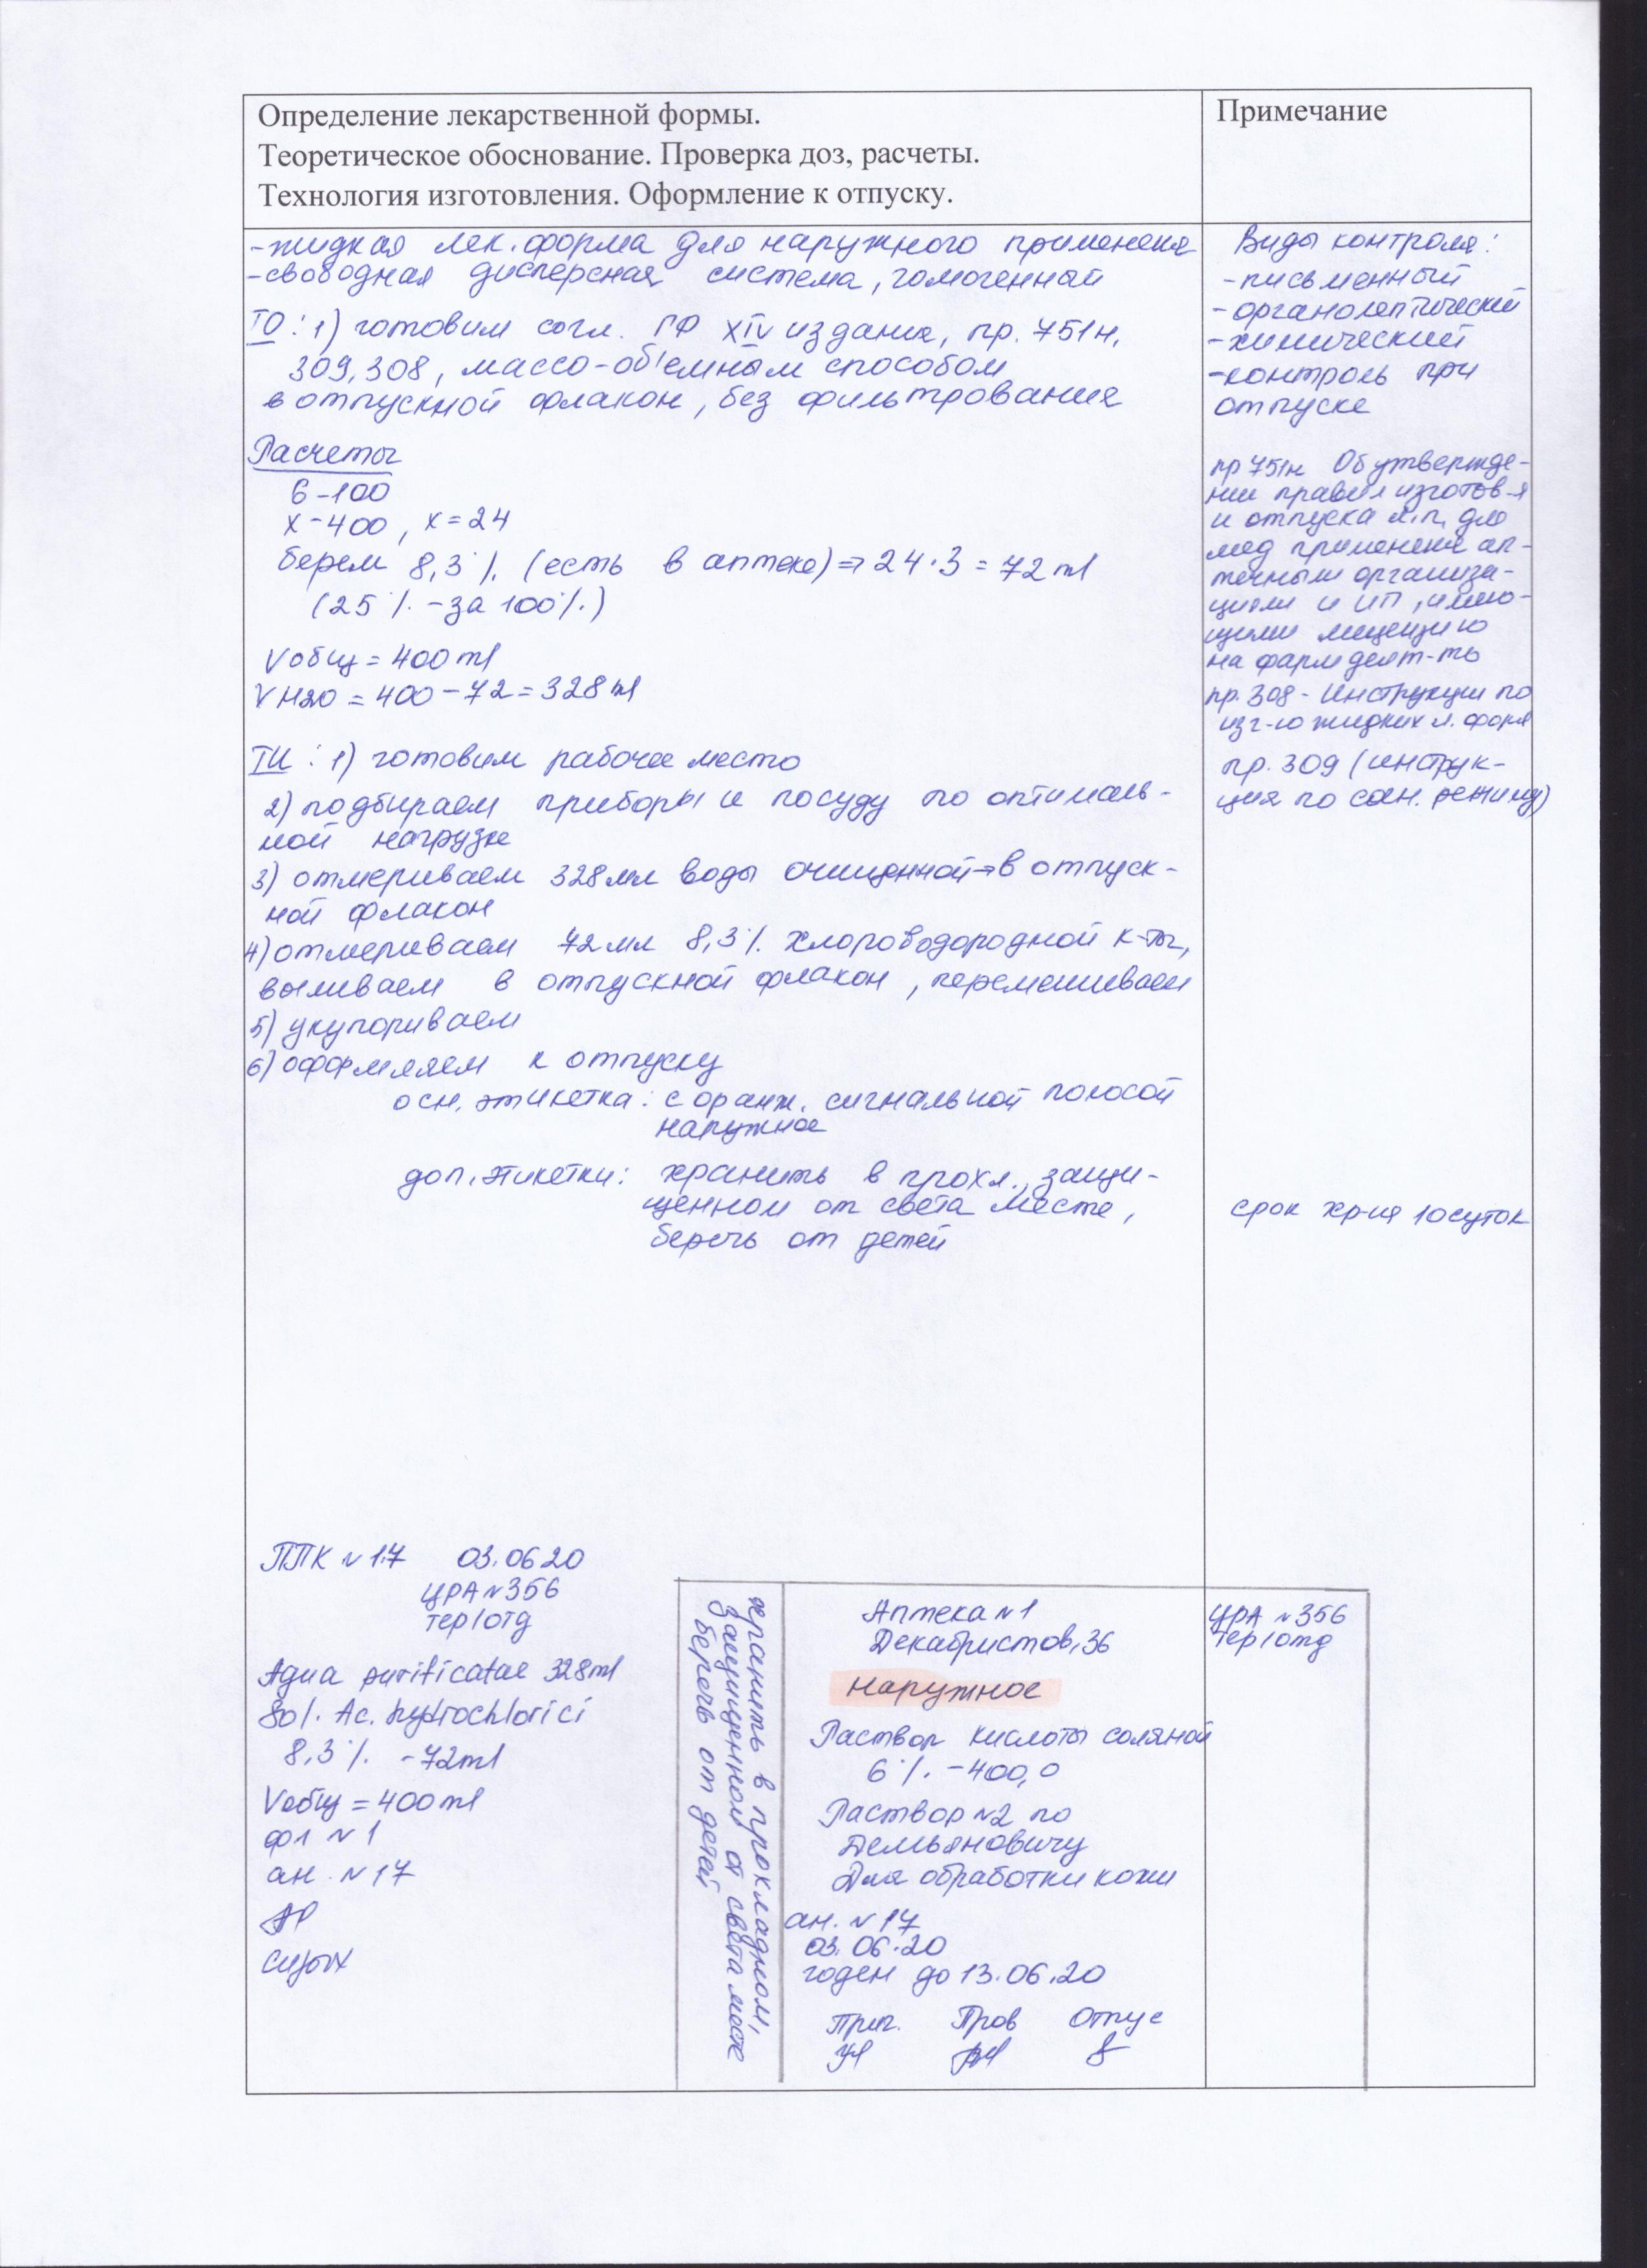 Определение лекарственной формы.
Теоретическое обоснование. Проверка доз, расчеты.
Технология изготовления. Оформление к отпуску.
Примечание
-жидкая лек. форма для наружного применения
-свободная дисперсная система, гомогенный
ТО: 1) готовим согл. ГФ XIV издания, пр. 751н,
309, 308, массо-объемным способом
в отпускной флакон, без фильтрования
Расчеты
6-100
х-400, х=24
берем 8,3% (есть в аптеке)⇒24·3=72ml
(25% -за 100%)
Vобщ = 400ml
VH2O = 400-72=328ml
ТИ: 1) готовим рабочее место
2) подбираем приборы и посуду по оптималь-
ной нагрузке
3) отмериваем 328мл воды очищенной→в отпуск-
ной флакон
4) отмериваем 72мл 8,3% хлороводородной к-ты,
выливаем в отпускной флакон, перемешиваем
5) укупориваем
6) оформляем к отпуску
осн. этикетка: с оранж. сигнальной полосой
наружное
доп. этикетки: хранить в прохл., защи-
щенном от света месте,
беречь от детей
Виды контроля:
-письменный
-органолептический
-химический
-контроль при
отпуске
пр 751н Об утвержде-
нии правил изготов-я
и отпуска л.п. для
мед применения ап-
течными организа-
циями и ИП, имею-
щими лицензию
на фарм деят-ть
пр. 308 - Инструкции по
изг-ю жидких л. форм
пр. 309 (инструк-
ция по сан. режиму)
срок хр-ия 10суток
ППК №17 03.06 20
ЦРА №356
тер/отд
Aqua purificatae 328ml
Sol. Ac. hydrochlorici
8,3% -72ml
Vобщ = 400ml
фл №1
ан. №17
хранить в прохладном,
защищенном от света месте
беречь от детей
Аптека №1
Декабристов, 36
наружное
Раствор кислоты соляной
6% -400,0
Раствор №2 по
Демьяновичу
Для обработки кожи
ан. №17
03.06.20
годен до 13.06.20
Приг. Пров Отпус
ЦРА №356
тер/отд